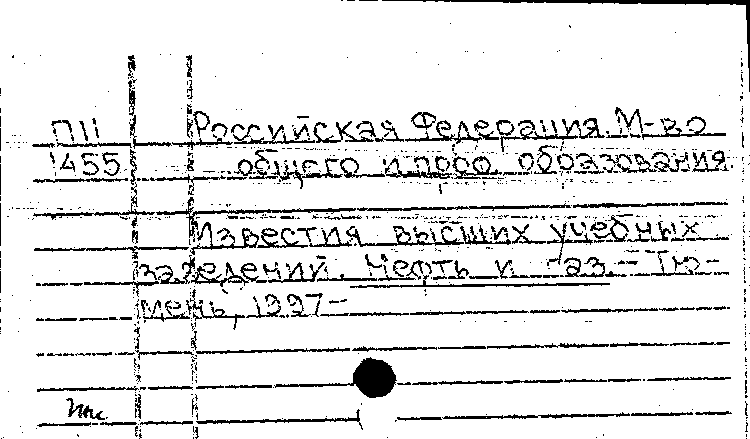 П11 Российская Федерация. М-во
1455 общего и проф. образования
Известия высших учебных
заведений. Нефть и газ. – Тю-
мень, 1997–